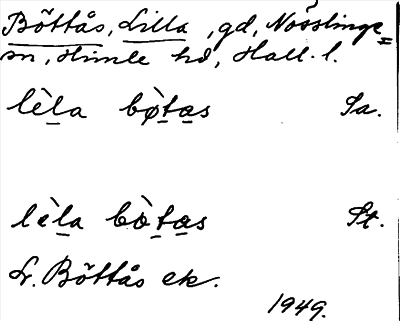 Böttås, Lilla, gd, Nösslinge
sn, Himle hd, Hall. l.
lèla bø̀tas Sa.
lèla bò̀tas St.
Lr. Böttås ek.
1949.